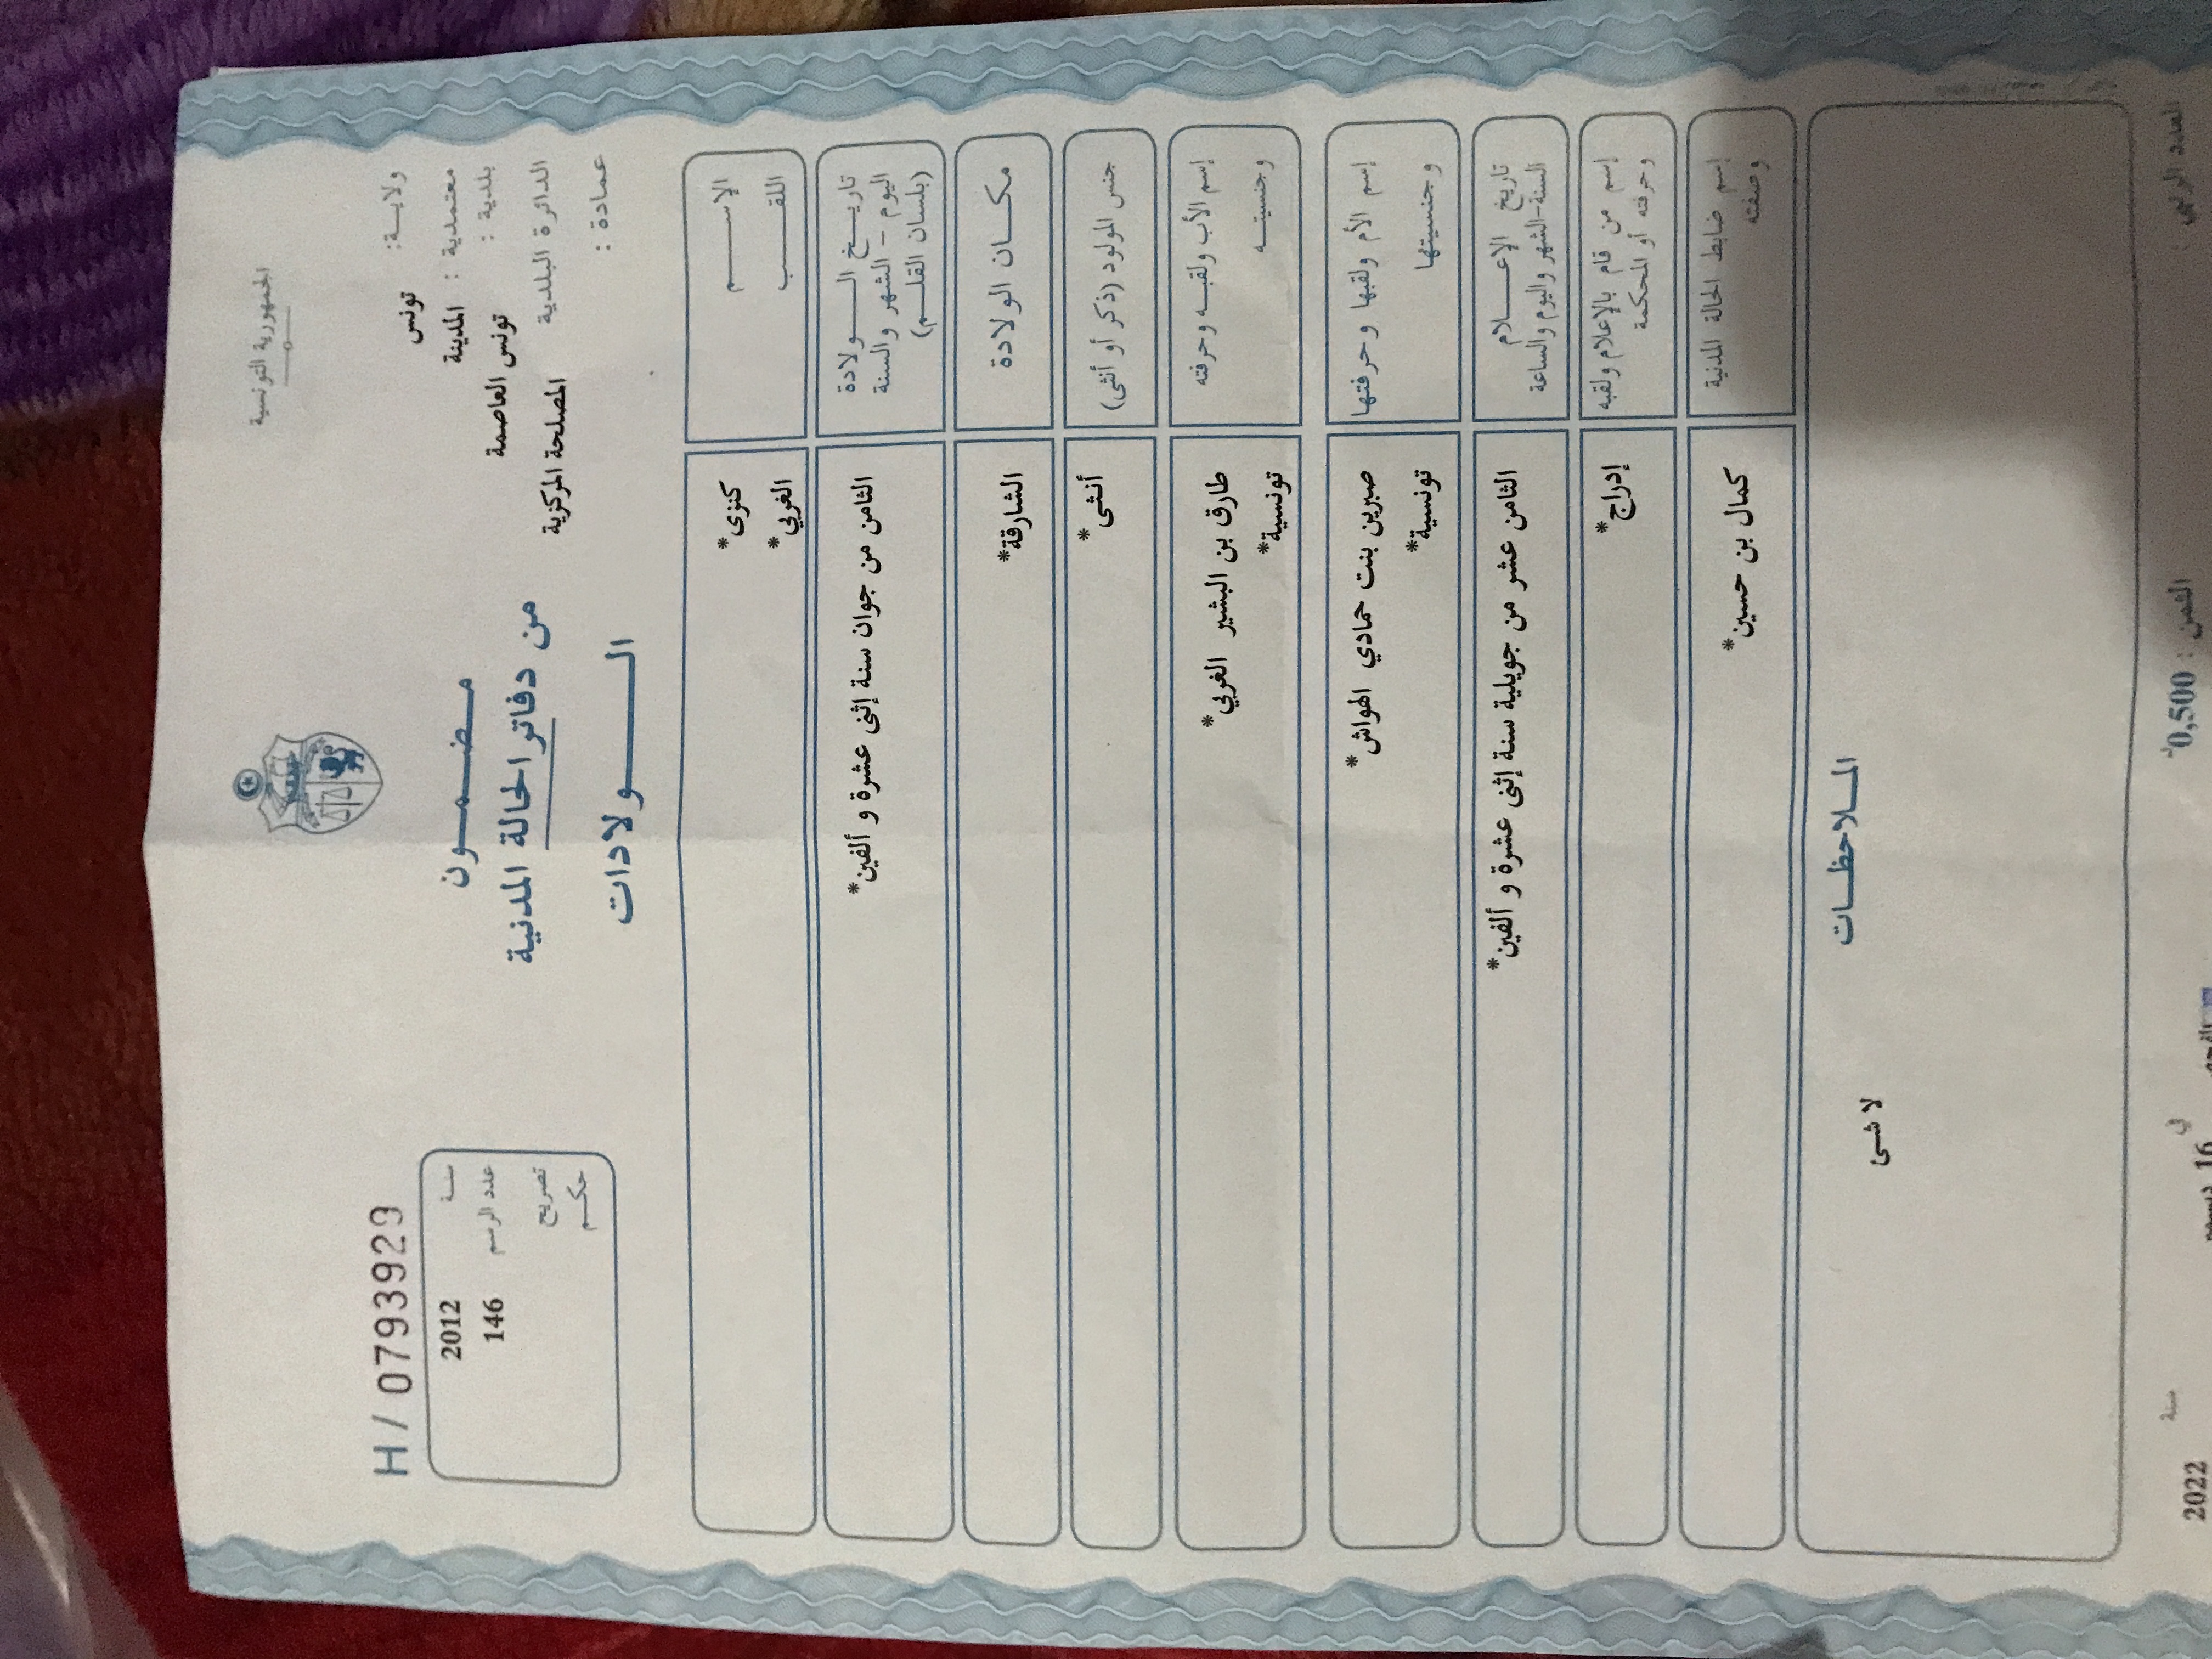 الجمهورية التونسية
ولاية: تونس
معتمدية : المدينة
بلدية : تونس العاصمة
الدائرة البلدية المصلحة المركزية
عمادة :
مضمون
من دفاتر الحالة المدنية
الولادات
H / 07939 29
سنة 2012
عدد الرسم 146
تصريح
حكم
الإسم كنزى*
اللقب الغربي*
تاريخ الولادة
اليوم - الشهر والسنة
(بلسان القلم)
الثامن من جوان سنة إثنى عشرة و ألفين*
مكان الولادة الشارقة*
جنس المولود (ذكر أو أنثى) أنثى*
إسم الأب ولقبه وحرفته طارق بن البشير الغربي*
وجنسيته تونسية*
إسم الأم ولقبها وحرفتها صبرين بنت حمادي الهواش*
وجنسيتها تونسية*
تاريخ الإعلام
السنة-الشهر واليوم والساعة
الثامن عشر من جويلية سنة إثنى عشرة و ألفين*
إسم من قام بالإعلام ولقبه
وحرفته أو المحكمة
إدراج*
إسم ضابط الحالة المدنية
وصفته
كمال بن حسين*
الملاحظات
لا شئ
العدد الرتبي :
الثمن : 0,500د
في 16 ديسمبر سنة 2022